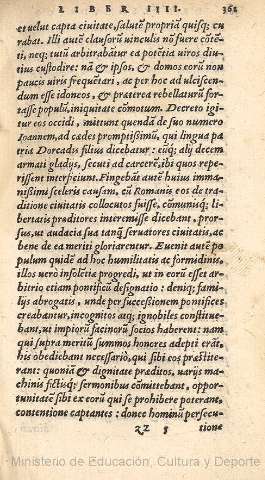 LIBER IIII. 361
et uelut capta ciuitate, salutē propriā quisq; cu
rabat. Illi autē clausorū uinculis nō fuere cōtē-
ti, neq; tutū arbitrabātur ea potētia uiros diu-
tius custodire: nā & ipsos, & domos eorū non
paucis uiris frequētari, ac per hoc ad ulciscen-
dum esse idoneos, & praeterea rebellaturū for-
tasse populū, iniquitate cōmotum. Decreto igi
tur eos occidi, mittunt quendā de suo numero
Ioannem, ad caedes promptissimū, qui lingua pa
tria Dorcadis filius dicebatur: eūq; alij decem
armati gladijs, secuti ad carcerē, ibi quos repe-
rissent interficiunt. Fingebāt autē huius imma-
nissimi sceleris causam, cū Romanis eos de tra-
ditione ciuitatis collocutos fuisse, cōmunisq; li-
bertatis proditores interemisse dicebant, pror-
sus, ut audacia sua tanq̄ seruatores ciuitatis, ac
bene de ea meriti gloriarentur. Euenit autē po
pulum quidē ad hoc humilitatis ac formidinis,
illos uero insolētia progredi, ut in eorū esset ar
bitrio etiam pontificū designatio : deniq; fami-
lijs abrogatis, unde per successionem pontifices
creabantur, incognitos atq; ignobiles constitue-
bant, ut impiorū facinorū socios haberent: nam
qui supra meritū summos honores adepti erāt,
his obediebant necessario, qui sibi eos praestite-
rant: quoniā & dignitate praeditos, uarijs ma-
chinis fictisq; sermonibus cōmittebant, oppor-
tunitatē sibi ex eorū qui se prohibere poterant,
contentione captantes : donec hominū persecu-
ZZ 5 tione
Ministerio de Educación, Cultura y Deporte